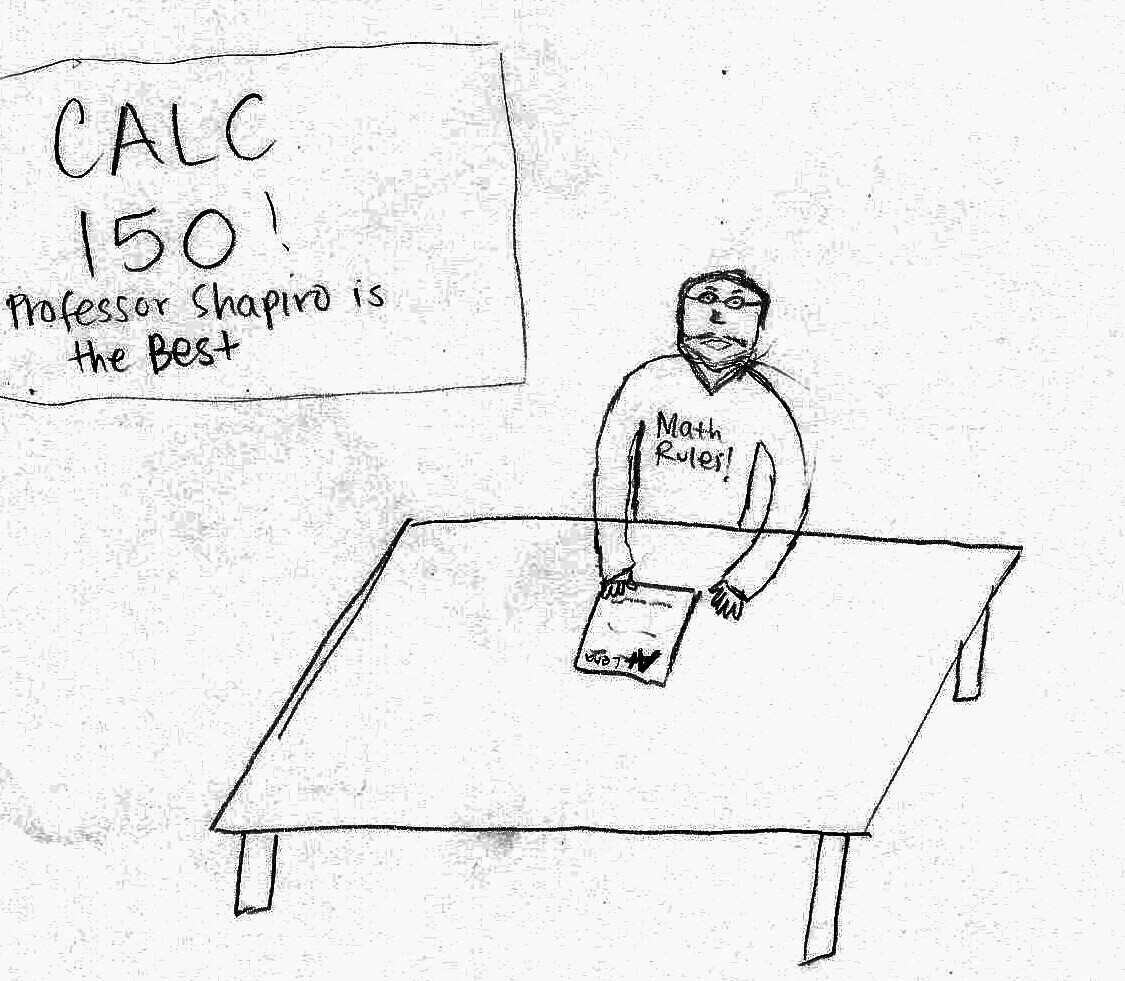 CALC
150!
Professor Shapiro is
the Best
Math
Rules!